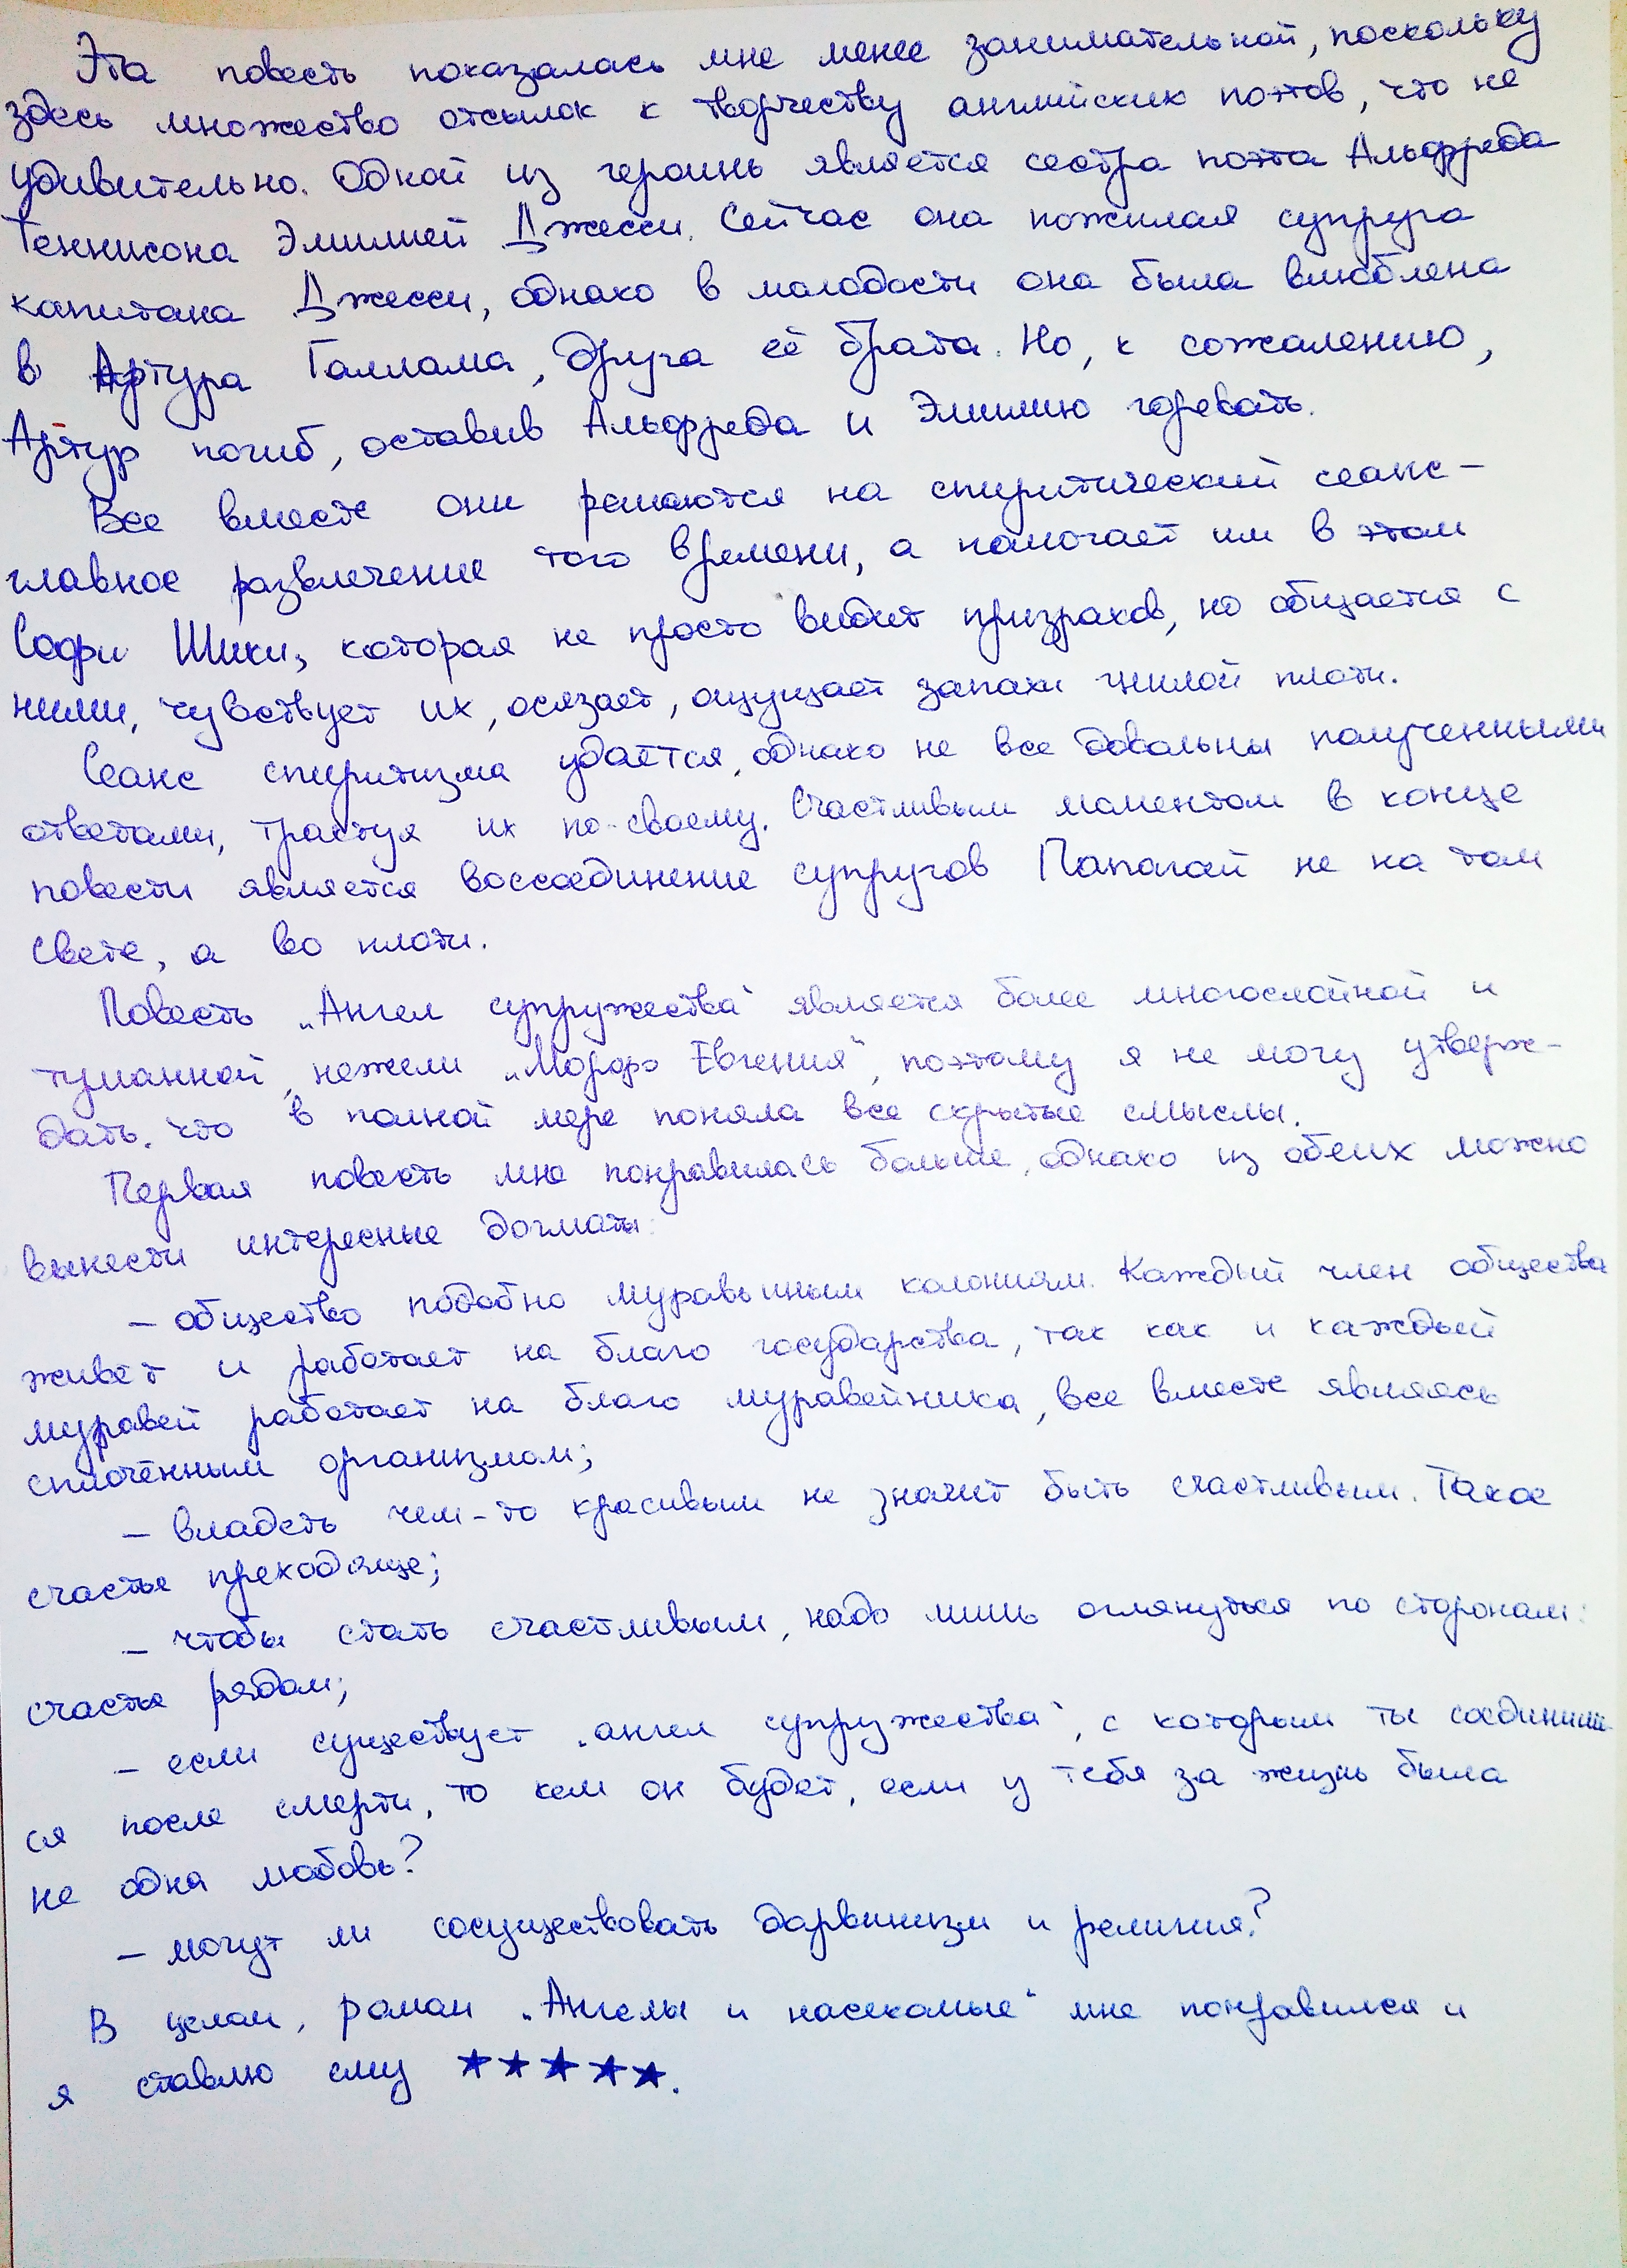 Эта повесть показалась мне менее занимательной, поскольку
здесь множество отсылок к творчеству английских поэтов, что не
удивительно. Одной из героинь является сестра поэта Альфреда
Теннисона Эмилией Джесси. Сейчас она пожилая супруга
капитана Джесси, однако в молодости она была влюблена
в Артура Галлама, друга её брата. Но, к сожалению,
Артур погиб, оставив Альфреда и Эмилию горевать.
Все вместе они решаются на спиритический сеанс –
главное развлечение того времени, а помогает им в этом
Софи Шики, которая не просто видит призраков, но общается с
ними, чувствует их, осязает, ощущает запахи гнилой плоти.
Сеанс спиритизма удаётся, однако не все довольны полученными
ответами, трактуя их по-своему. Счастливым моментом в конце
повести является воссоединение супругов Папагай не на том
свете, а во плоти.
Повесть „Ангел супружества“ является более многослойной и
туманной, нежели „Морфо Евгения“, поэтому я не могу утверж-
дать, что в полной мере поняла все скрытые смыслы.
Первая повесть мне понравилась больше, однако из обеих можно
вынести интересные догматы:
– общество подобно муравьиным колониям. Каждый член общества
живёт и работает на благо государства, так как и каждый
муравей работает на благо муравейника, все вместе являясь
сплочённым организмом;
– владеть чем-то красивым не значит быть счастливым. Такое
счастье преходяще;
– чтобы стать счастливым, надо лишь оглянуться по сторонам:
счастье рядом;
– если существует „ангел супружества“, с которым ты соединишь-
ся после смерти, то кем он будет, если у тебя за жизнь была
не одна любовь?
– могут ли сосуществовать дарвинизм и религия?
В целом, роман „Ангелы и насекомые“ мне понравился и
я ставлю ему ★★★★★.